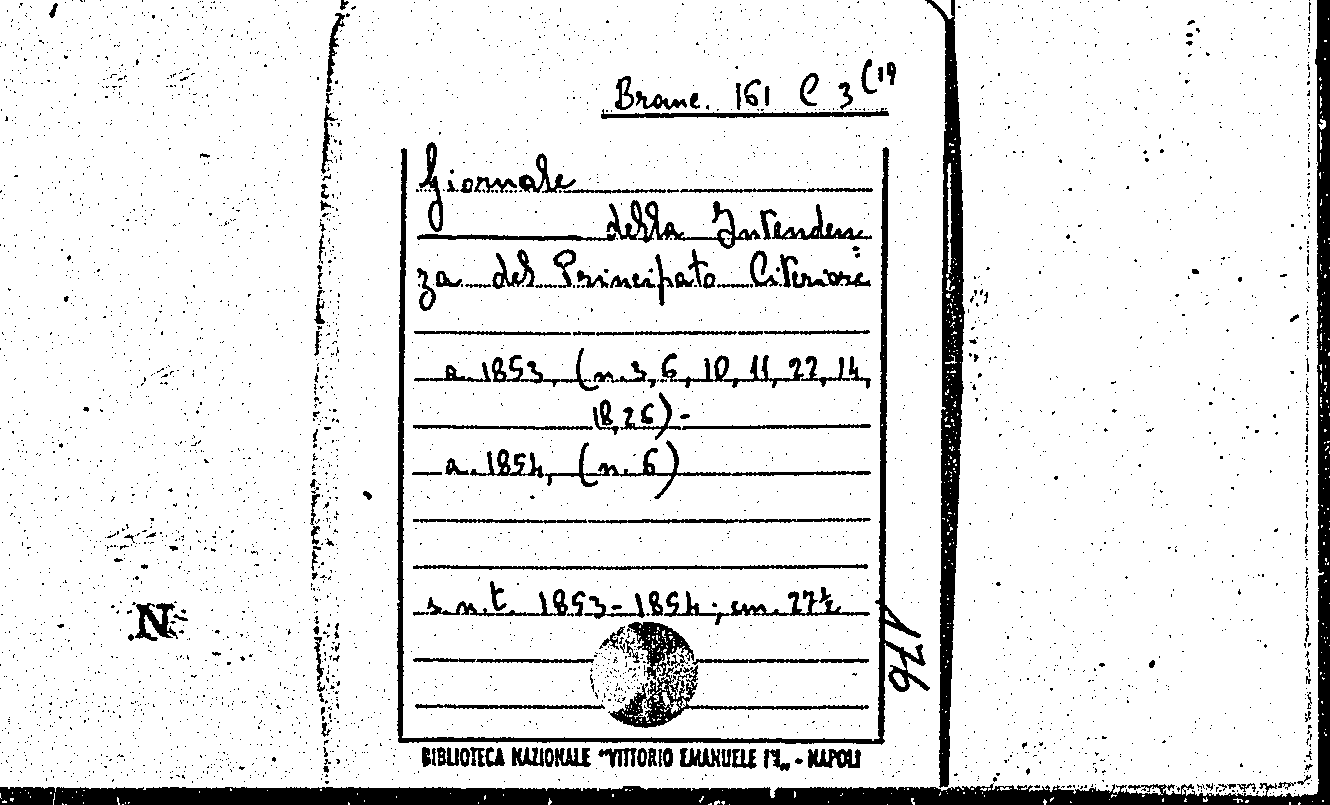 Branc. 161 C 3 (19
Giornale
della Intenden=
za del Principato Citeriore
a. 1853, (n. 3, 6, 10, 11, 22, 14,
18, 26) -
a. 1854, (n. 6)
s. n. t. 1853-1854; cm. 27½
176
N
BIBLIOTECA NAZIONALE "VITTORIO EMANUELE III" - NAPOLI